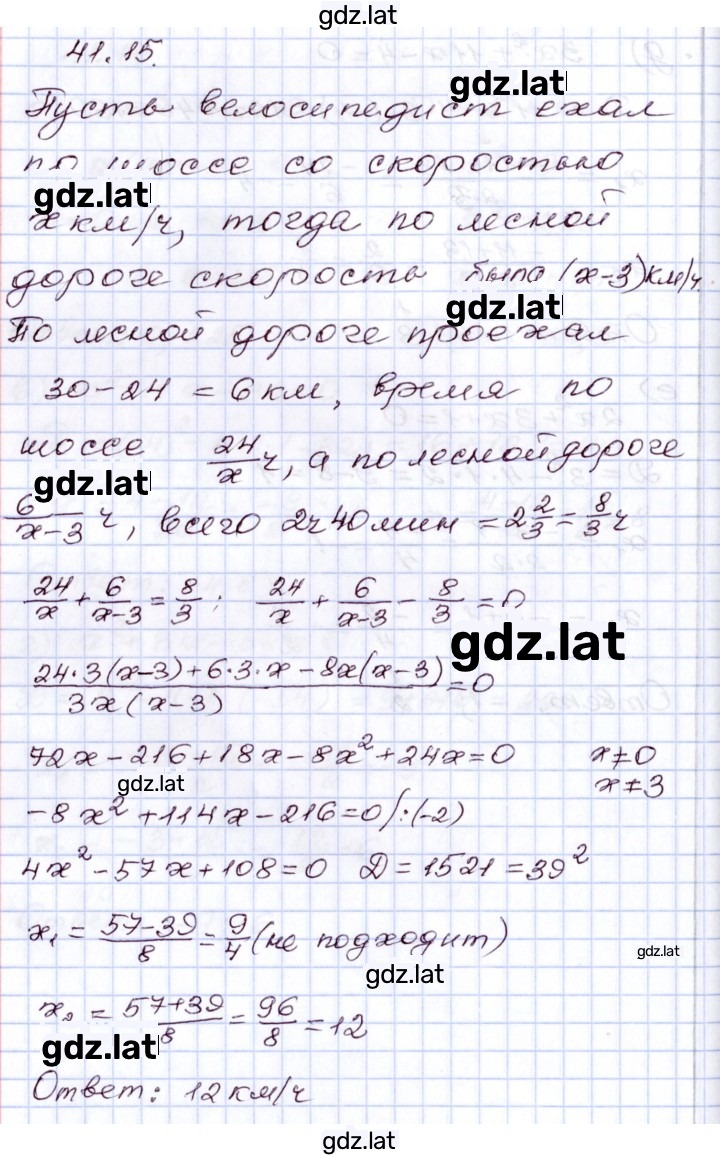 gdz.lat
41.15.
gdz.lat
Пусть велосипедист ехал
по шоссе со скоростью
gdz.lat
x км/ч, тогда по лесной
дороге скорость была (x-3) км/ч.
gdz.lat
По лесной дороге проехал
30-24 = 6 км, время по
шоссе 24/x ч, а по лесной дороге
gdz.lat
6/(x-3) ч, всего 2ч 40 мин = 2 2/3 = 8/3 ч
24/x + 6/(x-3) = 8/3 ; 24/x + 6/(x-3) - 8/3 = 0
gdz.lat
(24·3(x-3)+6·3·x-8x(x-3))/(3x(x-3)) = 0
72x-216+18x-8x²+24x=0 x≠0
gdz.lat x≠3
-8x²+114x-216=0 /:(-2)
4x²-57x+108=0 Д=1521=39²
x₁ = (57-39)/8 = 9/4 (не подходит)
gdz.lat
gdz.lat
x₂ = (57+39)/8 = 96/8 = 12
gdz.lat
Ответ: 12 км/ч
gdz.lat